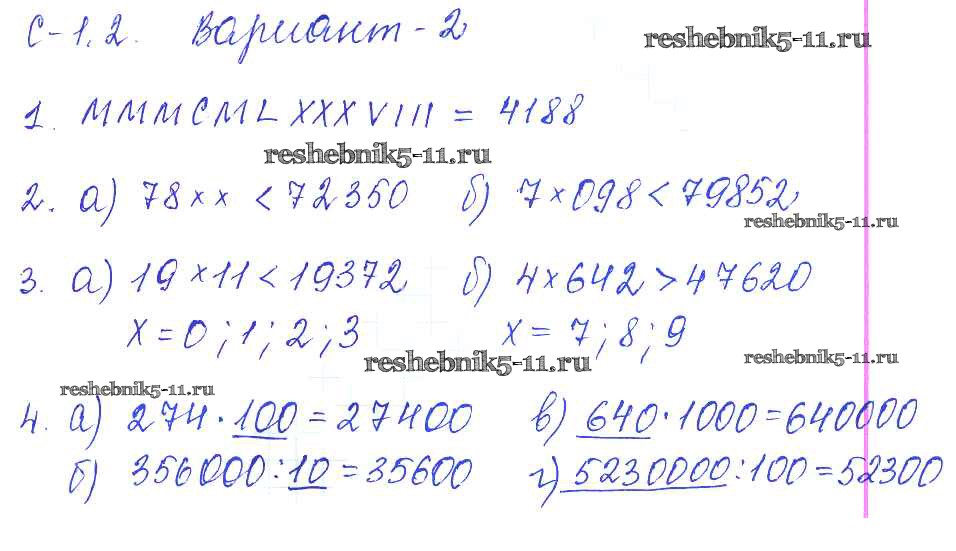 С-1.2. Вариант-2 reshebnik5-11.ru
1. MMMCMLXXXVIII = 4188
reshebnik5-11.ru
2. а) 78×× < 72350 б) 7×098 < 79852
reshebnik5-11.ru
3. а) 19×11 < 19372 б) 4×642 > 47620
X = 0; 1; 2; 3 X = 7; 8; 9
reshebnik5-11.ru reshebnik5-11.ru
reshebnik5-11.ru
4. а) 274 · 100 = 27400 в) 640 · 1000 = 640000
б) 356000 : 10 = 35600 г) 5230000 : 100 = 52300